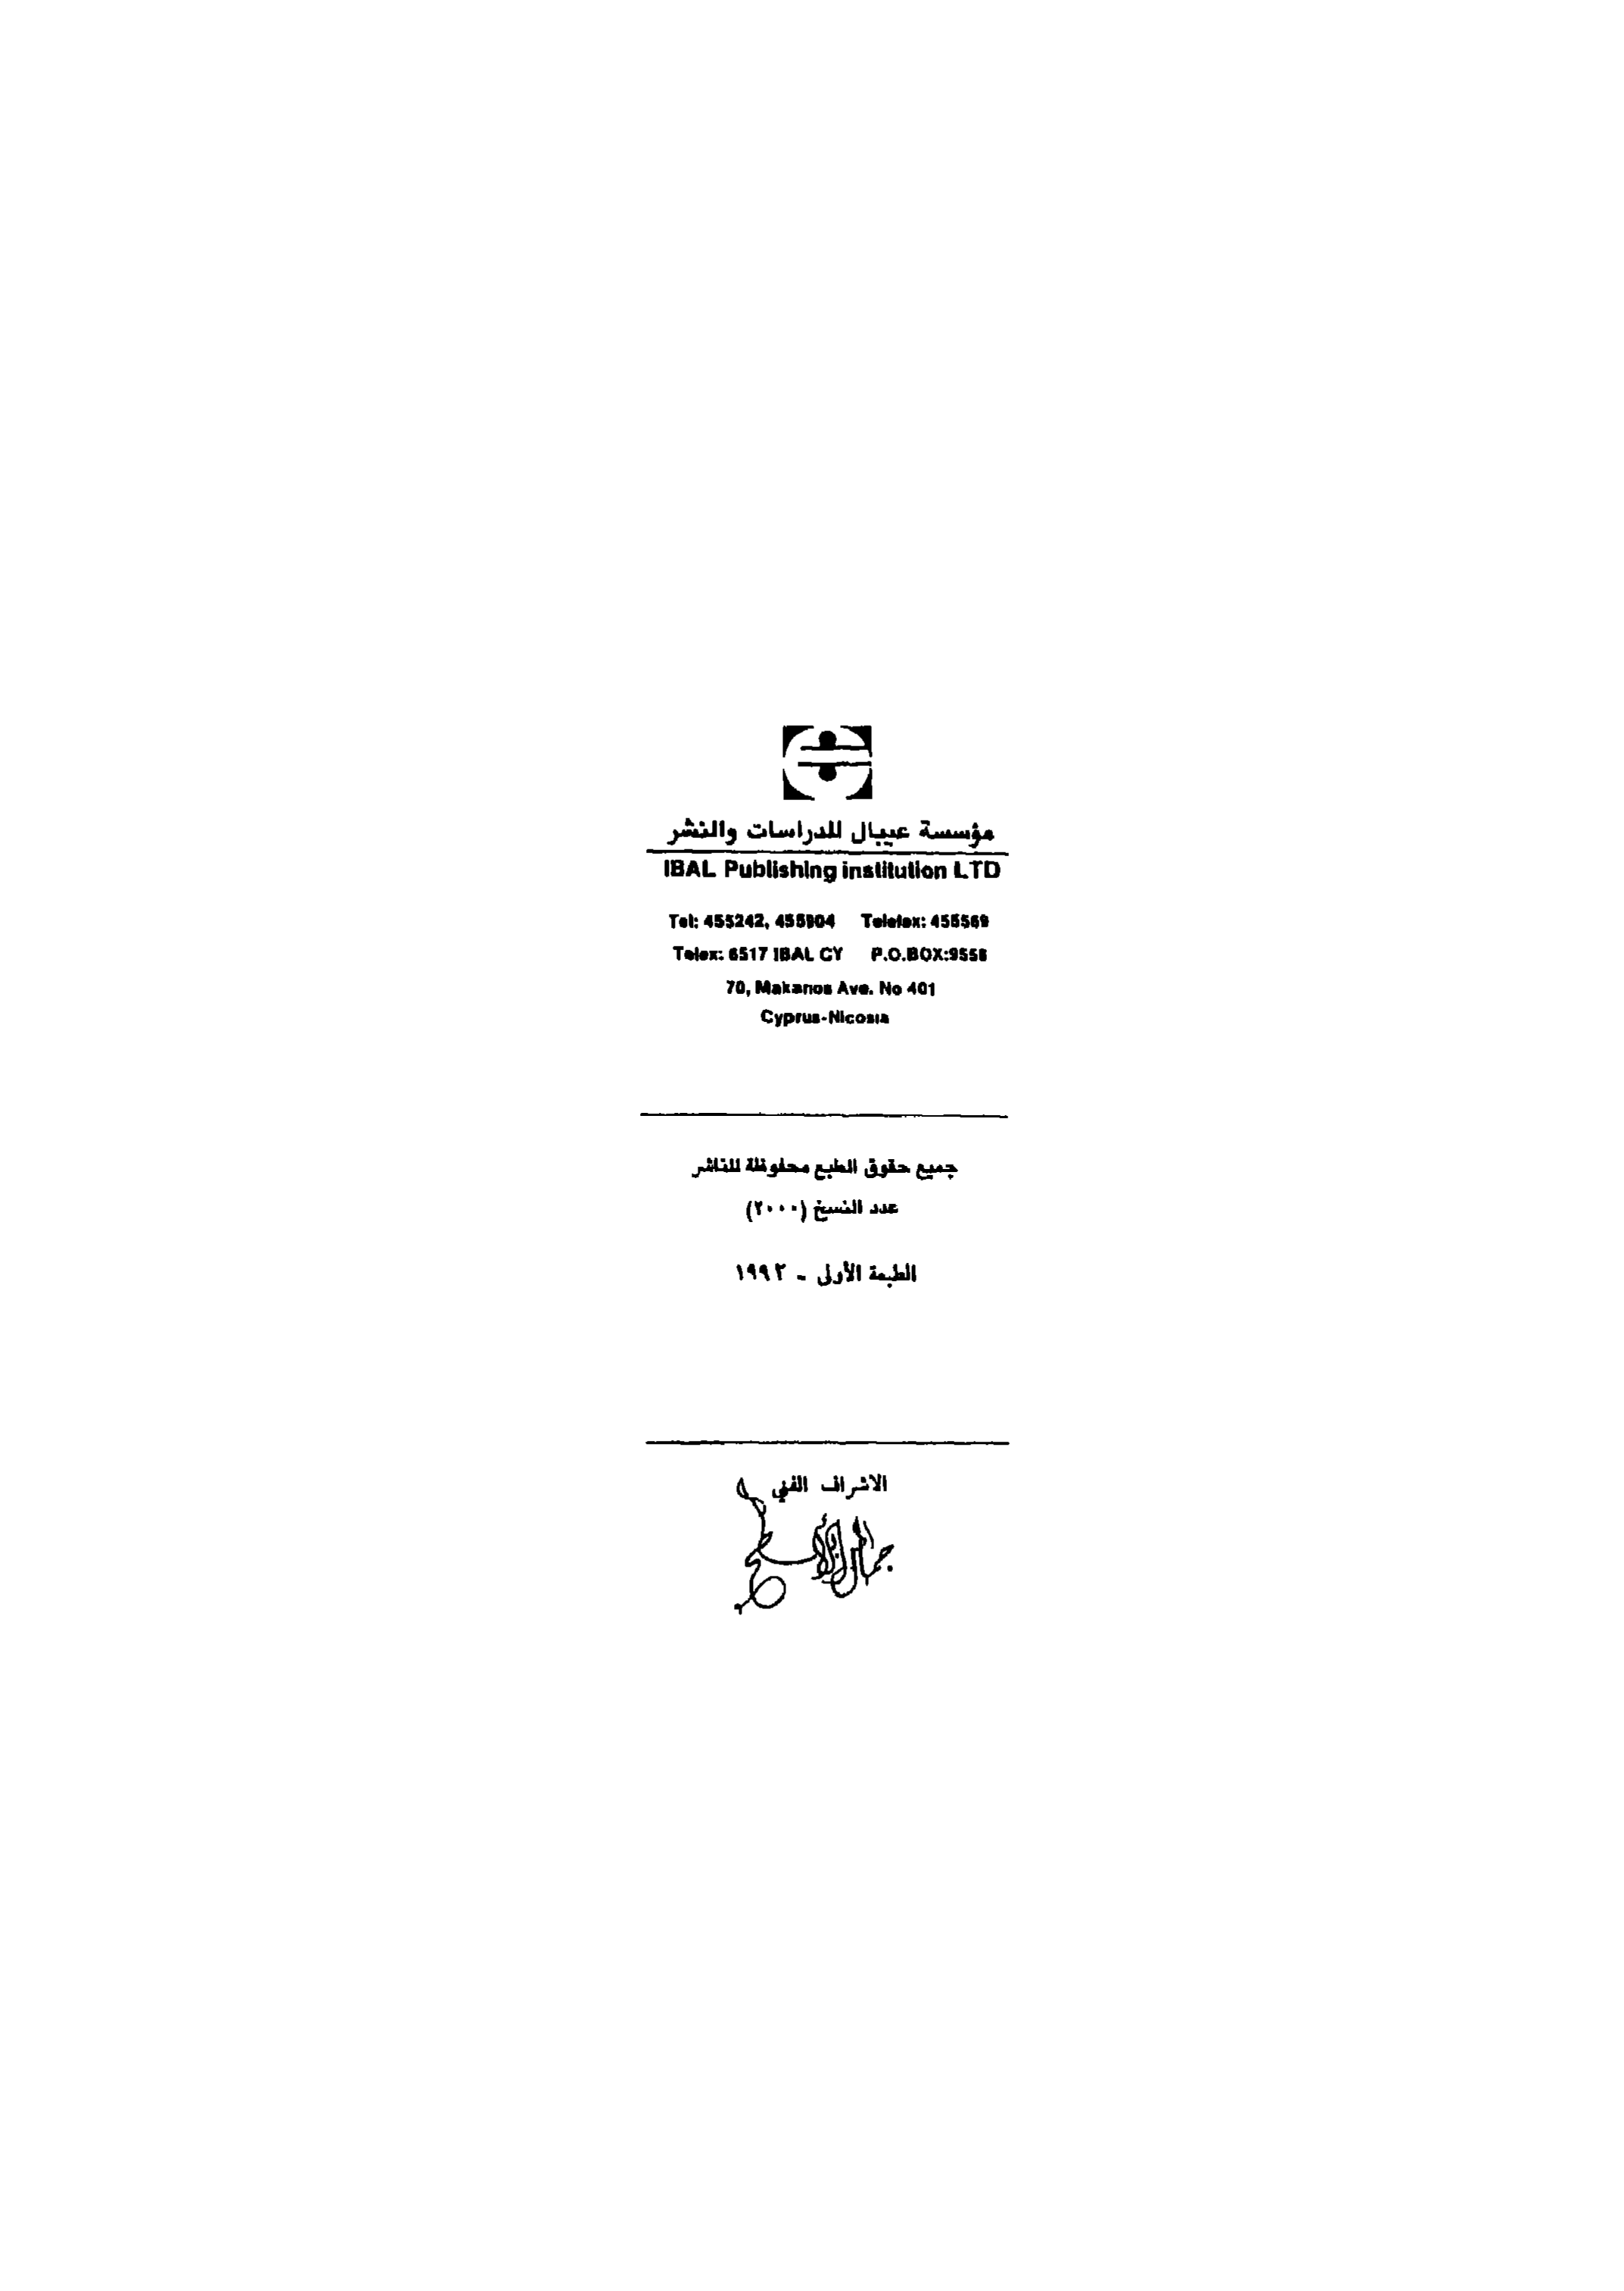 مؤسسة عيبال للدراسات والنشر
IBAL Publishing institution LTD
Tel: 455242, 455904 Telefax: 455569
Telex: 6517 IBAL CY P.O.BOX:9558
70, Makarios Ave. No 401
Cyprus-Nicosia
جميع حقوق الطبع محفوظة للناشر
عدد النسخ (٢٠٠٠)
الطبعة الأولى - ١٩٩٢
الاشراف الفني
جمال الأبطح